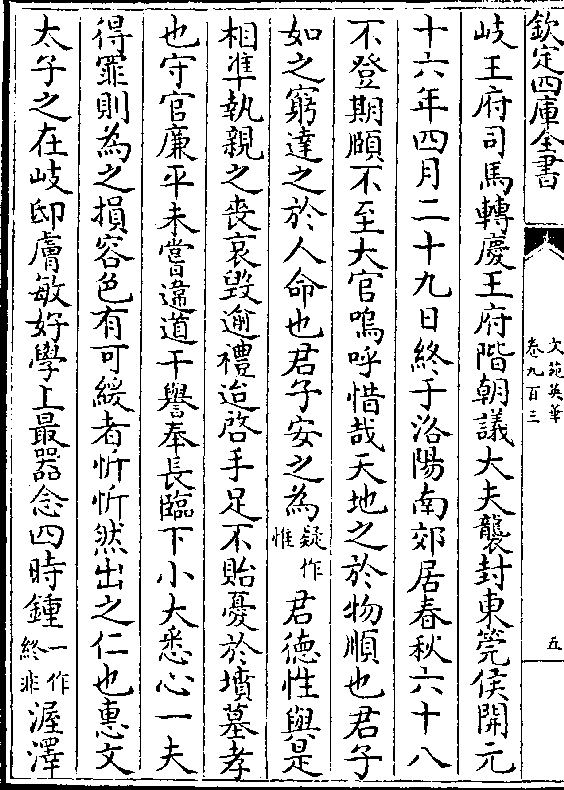 欽定四庫全書
文苑英華
卷九百三
五
岐王府司馬轉慶王府階朝議大夫襲封東莞侯開元
十六年四月二十九日終于洛陽南郊居春秋六十八
不登期頤不至大官嗚呼惜哉天地之於物順也君子
如之窮達之於人命也君子安之為疑作惟君德性與是
相準執親之喪哀毀逾禮迨啓手足不貽憂於墳墓孝
也守官廉平未嘗違道干譽奉長臨下小大悉心一夫
得罪則為之損容色有可緩者忻忻然出之仁也惠文
太子之在岐邸膚敏好學上最器念四時鍾一作終非渥澤